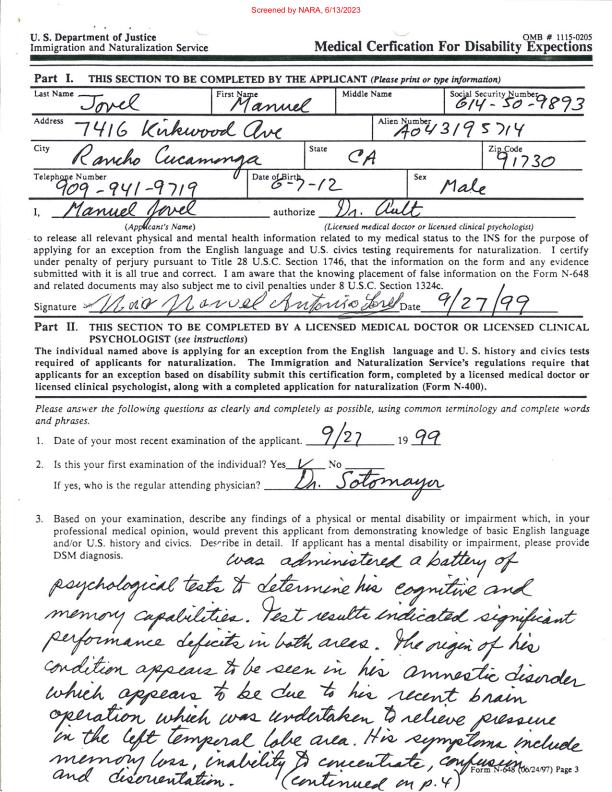 Screened by NARA, 6/13/2023
U. S. Department of Justice
Immigration and Naturalization Service
OMB # 1115-0205
Medical Cerfication For Disability Expections
Part I. THIS SECTION TO BE COMPLETED BY THE APPLICANT (Please print or type information)
Last Name Jovel First Name Manuel Middle Name Social Security Number 614-50-9893
Address 7416 Kirkwood Ave Alien Number A043195714
City Rancho Cucamonga State CA Zip Code 91730
Telephone Number 909-941-9719 Date of Birth 6-7-12 Sex Male
I, Manuel Jovel authorize Dr. Ault
(Applicant's Name) (Licensed medical doctor or licensed clinical psychologist)
to release all relevant physical and mental health information related to my medical status to the INS for the purpose of
applying for an exception from the English language and U.S. civics testing requirements for naturalization. I certify
under penalty of perjury pursuant to Title 28 U.S.C. Section 1746, that the information on the form and any evidence
submitted with it is all true and correct. I am aware that the knowing placement of false information on the Form N-648
and related documents may also subject me to civil penalties under 8 U.S.C. Section 1324c.
Signature Manuel Antonio Jovel Date 9/27/99
Part II. THIS SECTION TO BE COMPLETED BY A LICENSED MEDICAL DOCTOR OR LICENSED CLINICAL
PSYCHOLOGIST (see instructions)
The individual named above is applying for an exception from the English language and U. S. history and civics tests
required of applicants for naturalization. The Immigration and Naturalization Service's regulations require that
applicants for an exception based on disability submit this certification form, completed by a licensed medical doctor or
licensed clinical psychologist, along with a completed application for naturalization (Form N-400).
Please answer the following questions as clearly and completely as possible, using common terminology and complete words
and phrases.
1. Date of your most recent examination of the applicant. 9/27 19 99
2. Is this your first examination of the individual? Yes ✓ No
If yes, who is the regular attending physician? Dr. Sotomayor
3. Based on your examination, describe any findings of a physical or mental disability or impairment which, in your
professional medical opinion, would prevent this applicant from demonstrating knowledge of basic English language
and/or U.S. history and civics. Describe in detail. If applicant has a mental disability or impairment, please provide
DSM diagnosis. was administered a battery of
psychological tests to determine his cognitive and
memory capabilities. Test results indicated significant
performance deficits in both areas. The origin of his
condition appears to be seen in his amnestic disorder
which appears to be due to his recent brain
operation which was undertaken to relieve pressure
in the left temporal lobe area. His symptoms include
memory loss, inability to concentrate, confusion
and disorientation. (continued on p. 4)
Form N-648 (06/24/97) Page 3